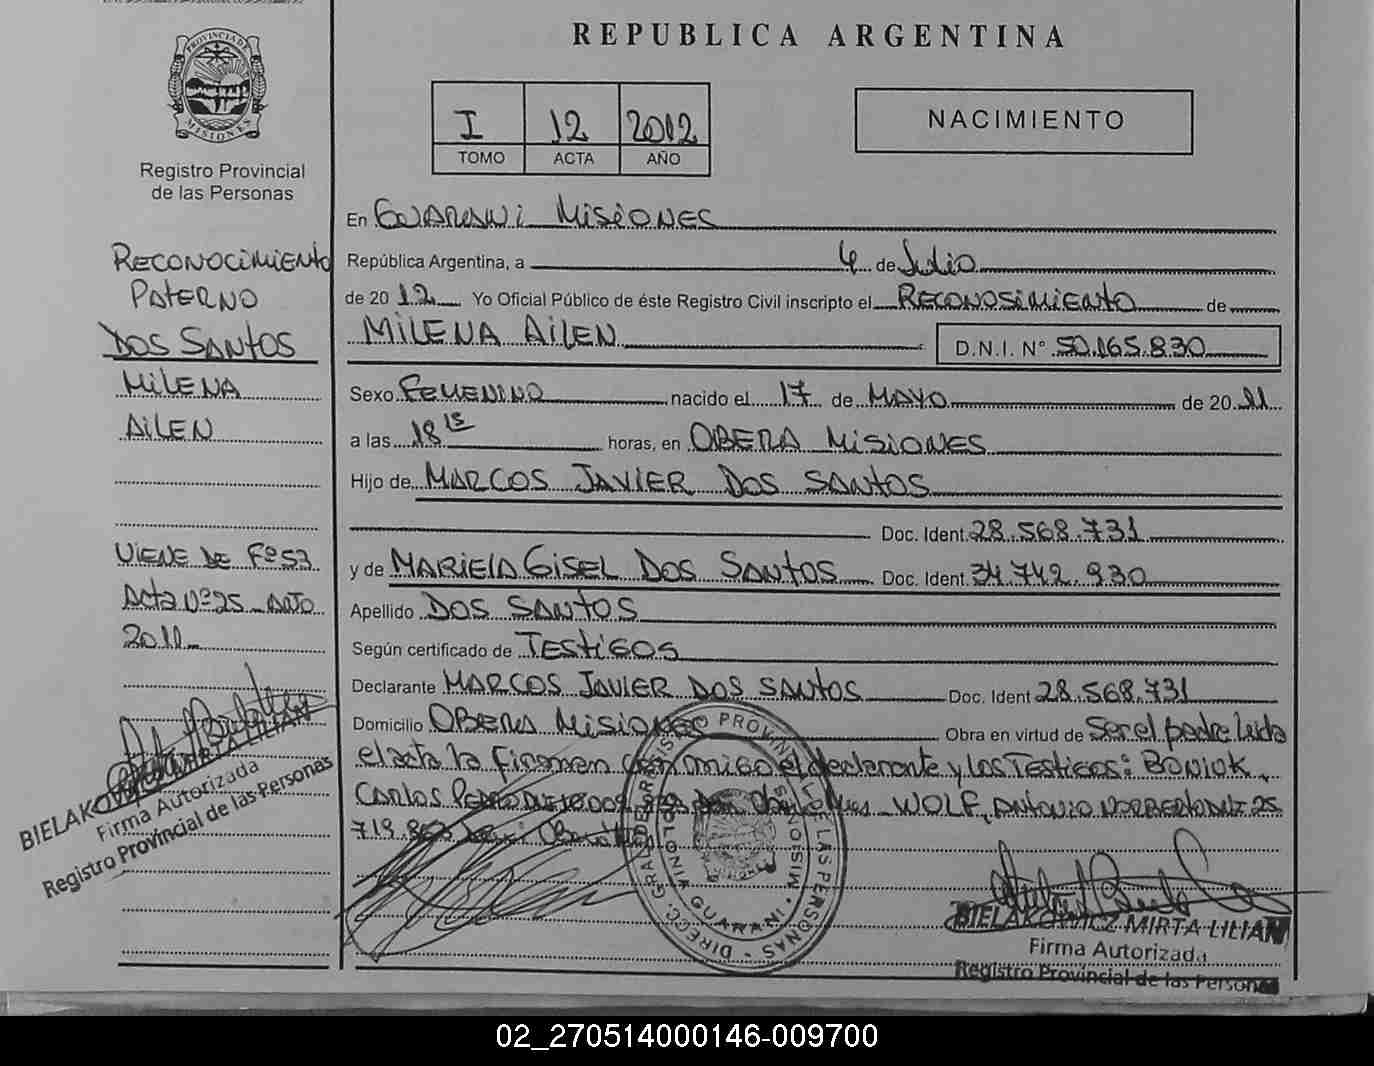 REPUBLICA ARGENTINA
PROVINCIA DE MISIONES
Registro Provincial
de las Personas
I 12 2012
TOMO ACTA AÑO
NACIMIENTO
RECONOCIMIENTO
PATERNO
DOS SANTOS
MILENA
AILEN
VIENE DE Fº 53
Acta Nº 25 - AÑO
2011
BIELAKOWICZ MIRTA LILIAN
Firma Autorizada
Registro Provincial de las Personas
En GUARANI MISIONES
República Argentina, a 4 de Julio
de 2012 Yo Oficial Público de éste Registro Civil inscripto el RECONOSIMIENTO de
MILENA AILEN D.N.I. Nº 50.165.830
Sexo FEMENINO nacido el 17 de MAYO de 2011
a las 18 15 horas, en OBERA MISIONES
Hijo de MARCOS JAVIER DOS SANTOS
Doc. Ident. 28.568.731
y de MARIELA GISEL DOS SANTOS Doc. Ident. 34.742.930
Apellido DOS SANTOS
Según certificado de TESTIGOS
Declarante MARCOS JAVIER DOS SANTOS Doc. Ident 28.568.731
Domicilio OBERA MISIONES Obra en virtud de Ser el padre Leida
el acta la firman conmigo el declarante y los Testigos: BONIUK,
CARLOS PEDRO WOLF, ANTONIO NORBERTO DNI 25
719.
DIRECC. GRAL. DEL REGISTRO PROVINCIAL DE LAS PERSONAS
COLONIA GUARANI MISIONES
BIELAKOWICZ MIRTA LILIAN
Firma Autorizada
Registro Provincial de las Personas
02_270514000146-009700